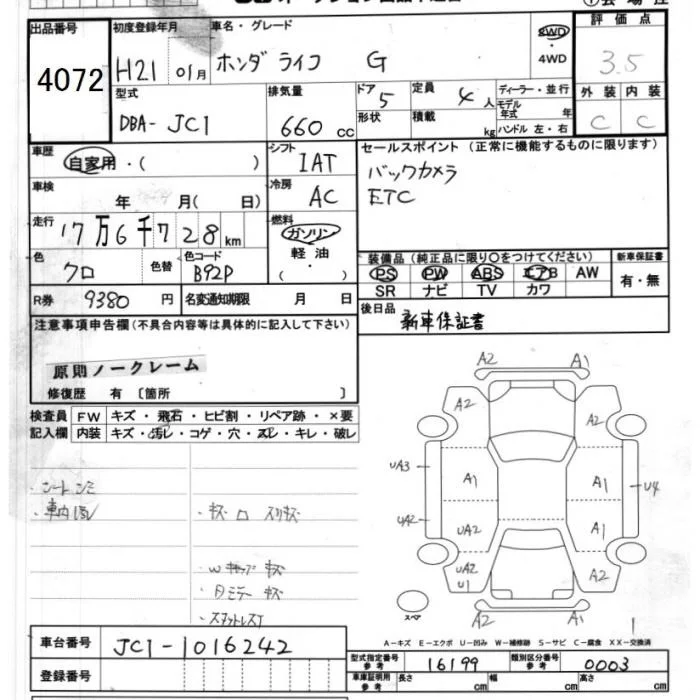 出品番号
4072
初度登録年月
H21 01月
車名・グレード
ホンダ ライフ G
2WD
・
4WD
評価点
3.5
外装 内装
C C
型式
DBA- JC1
排気量
660 cc
ドア 5
形状
定員 4 人
積載 kg
ディーラー・並行
モデル年式 年
ハンドル 左・右
車歴
自家用・( )
シフト
IAT
セールスポイント (正常に機能するものに限ります)
バックカメラ
ETC
車検
年 月( 日)
冷房
AC
走行
17万6千728km
燃料
ガソリン
軽油
( )
色
クロ
色替
色コード
B92P
装備品(純正品に限り○をつけてください)
PS PW ABS エアB AW
SR ナビ TV カワ
新車保証書
有・無
R券 9380 円
名変通知期限 月 日
後日品
新車保証書
注意事項申告欄(不具合内容等は具体的に記入して下さい)
原則ノークレーム
修復歴 有 〔箇所 〕
検査員記入欄
FW キズ・飛石・ヒビ割・リペア跡・×要
内装 キズ・汚レ・コゲ・穴・スレ・キレ・破レ
・車内汚レ
・キズ ロ スリキズ
A2 A1
A2 A1
UA3 A1 A1 U4
UA2 UA2 A1
UA2 U1 A2
A2 A1
スペア
A−キズ E−エクボ U−凹み W−補修跡 S−サビ C−腐食 XX−交換済
車台番号 JC1-1016242
登録番号
型式指定番号 参考 16199
類別区分番号 参考 0003
車庫証明用 参考 長さ cm 幅 cm 高さ cm